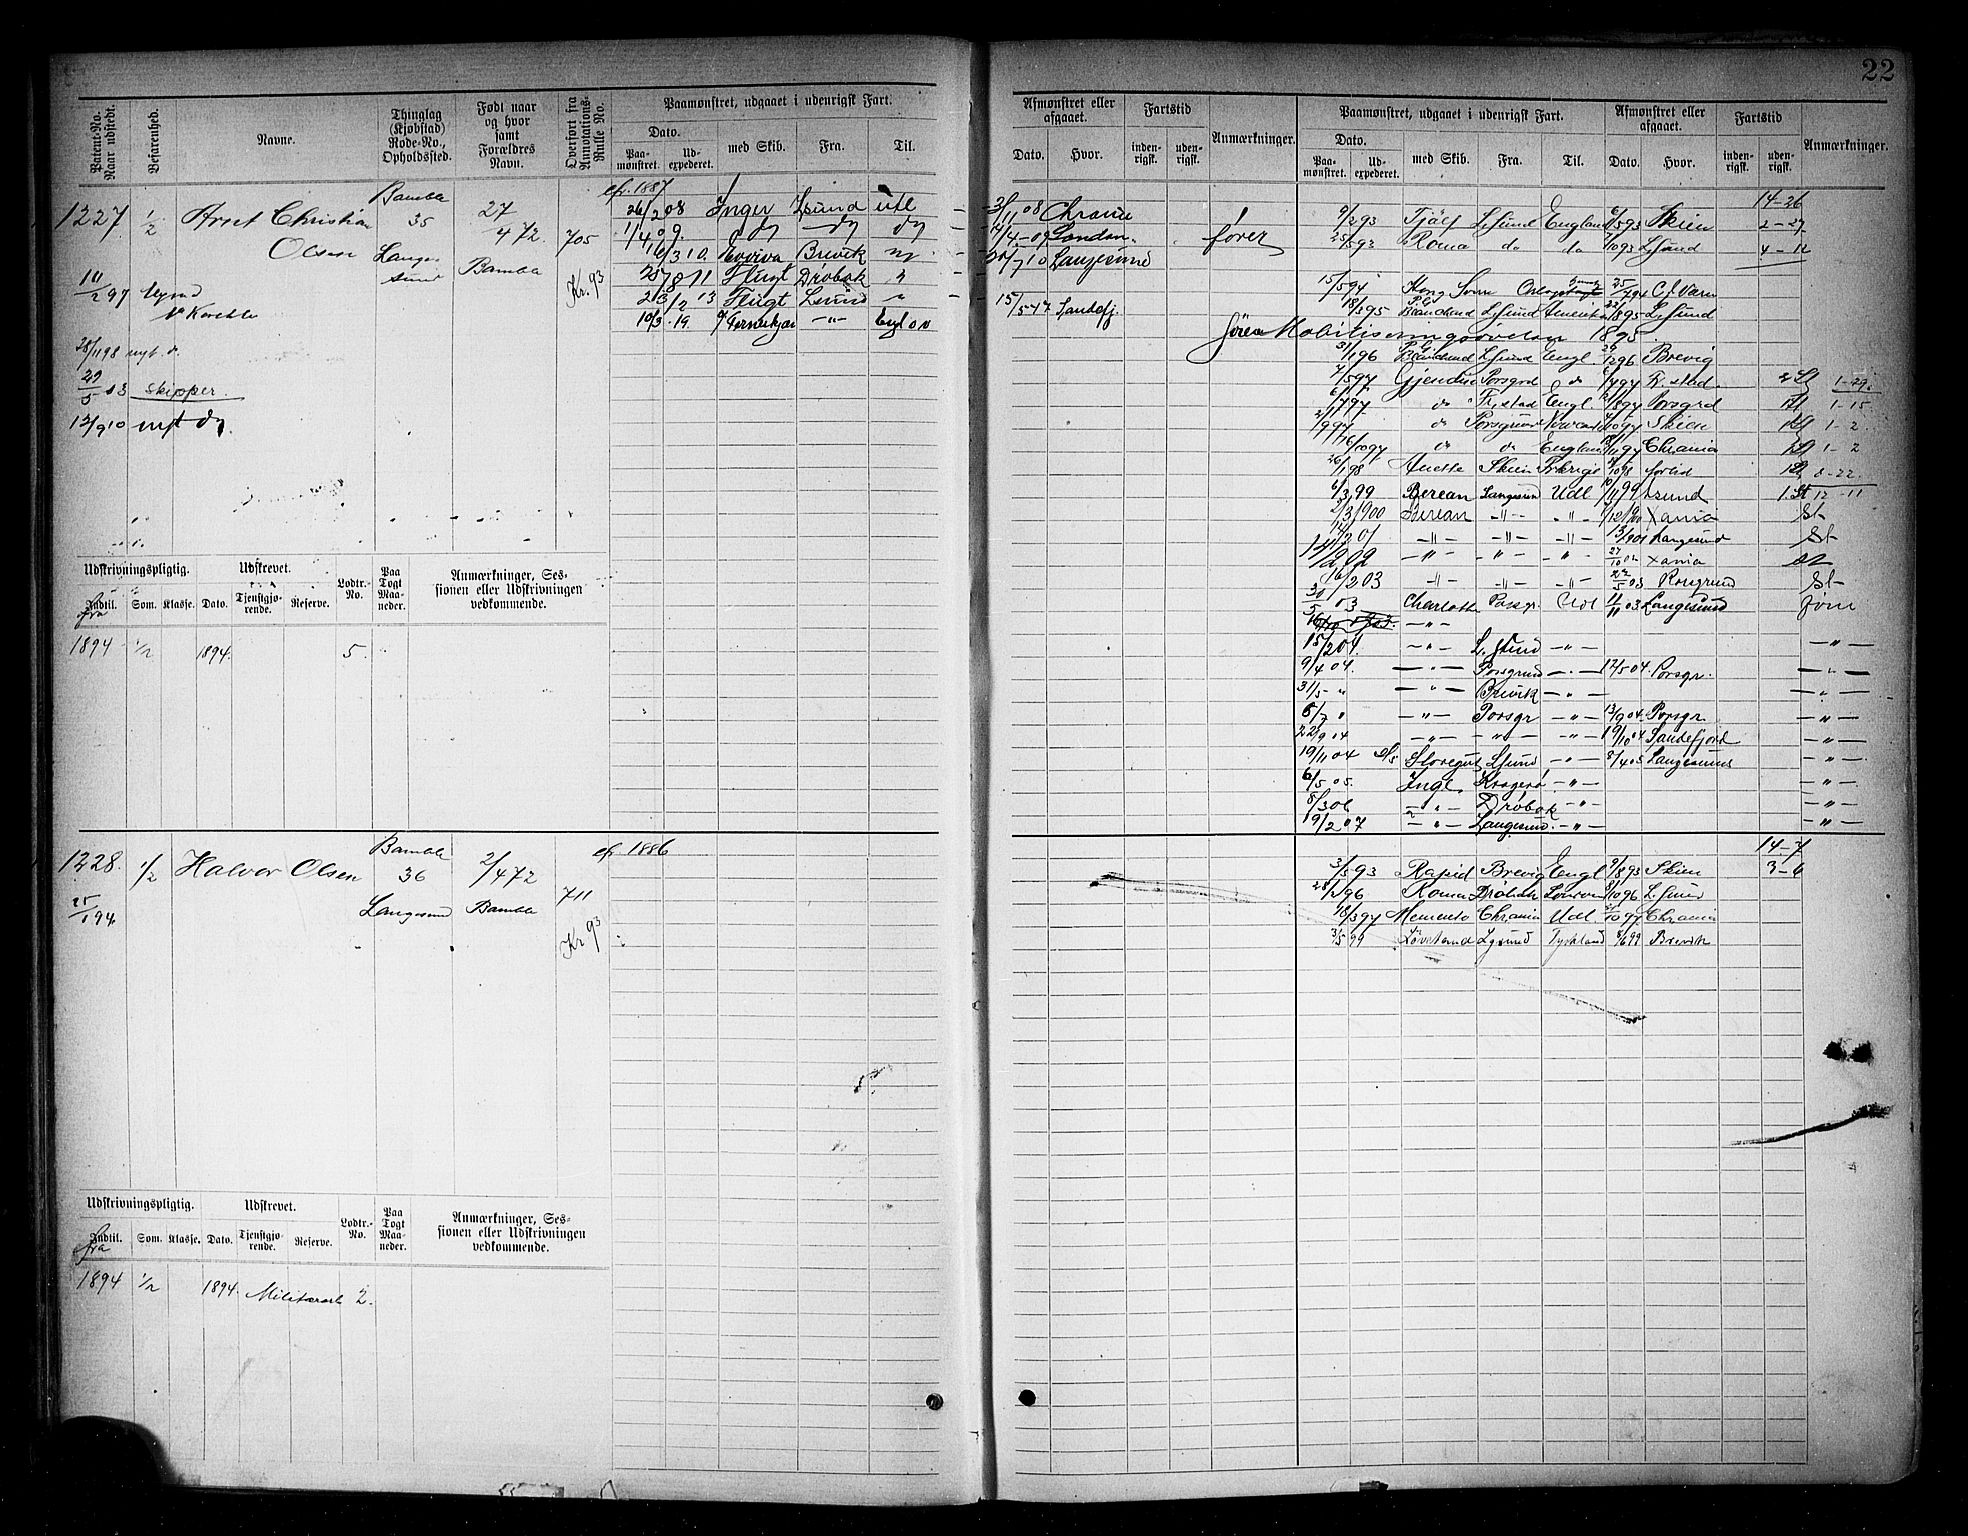 22
Patent-No. Naar udstedt.
Befarenhed.
Navne.
Thinglag (Kjøbstad) Rode-No., Opholdssted.
Født naar og hvor samt Forældres Navn.
Overført fra Annotations-Rulle No.
Paamønstret, udgaaet i udenrigsk Fart.
Dato.
Paamønstret.
Udexpederet.
med Skib.
Fra.
Til.
Afmønstret eller afgaaet.
Dato.
Hvor.
Fartstid
indenrigsk.
udenrigsk.
Anmærkninger.
Paamønstret, udgaaet i udenrigsk Fart.
Dato.
Paamønstret.
Udexpederet.
med Skib.
Fra.
Til.
Afmønstret eller afgaaet.
Dato.
Hvor.
Fartstid
indenrigsk.
udenrigsk.
Anmærkninger.
1227
1/2
Arnt Christian Olsen
Bamble
35
Langesund
27/4 72
Bamble
705
Kr. 93
efr. 1887
28/11 98 nyt d.
29/5 03 Skipper.
12/9 10 nyt do
26/2 08 Inger Lsund utl
1/4 09 do do do
16/3 10 Eviva Brevik
25/8 11 Flugt Drøbak "
23/2 13 Flugt Lsund "
10/3 19
11 08 Chrania
London
7 10 Langesund
fører
15/5 17 Sandefj.
14-26
9/2 93 Tjalf LSund England 6/5 93 Skien 2-27
25/5 93 Roma do do 10 93 LSund 4-12
15/5 94 Kong Sverre 25/7 94
18/3 95 Blanchend LSund 8 95 LSund
Mobiliseringsøvelsen 1895.
31/1 96 Blanchend LSund Engl. 29/2 96 Brevig
4/5 97 Gjendin Porsgrd do 4 97 Fr.stad 1-29
6/7 97 do Fr.stad Engl. 8 97 Porsgrd 1-15
9 97 do Porsgrund 10 97 Skien 1-2
16/10 97 do do England 11 97 Chrania 1-2
26/1 98 Anette Skien 10 98 forlid 8-22
6/3 99 Berean Langesund Udl 10/11 99 Lsund 12-11
2/3 1900 Berean -"- -"- 12 00 Xania St
14/2 01 -"- -"- -"- 13/9 01 Langesund St
14/2 02 -"- -"- -"- 27/10 02 Xania St
16/2 03 -"- -"- -"- 22/5 03 Porsgrund St
30/5 03 Charlotte Porsgr. Udl 11/11 03 Langesund
-"-
15/2 04. -"- L.sund -"- -"-
9/4 04. -"- Porsgrund -"- 12/5 04. Porsgr. -"-
31/5 " -"- Brevik -"- -"-
8/7 " -"- Porsgr -"- 13/9 04. Porsgr. -"-
22/9 04 -"- -"- -"- 19/10 04 Sandefjord -"-
19/11 04 Storegut LSund -"- 8/4 05 Langesund -"-
6/5 05. Inge. Kragerø -"- -"-
8/3 06 -"- Drøbak -"- -"-
19/2 07 -"- Langesund. -"- -"-
Udskrivningspligtig.
Udskrevet.
Lodtr.-No.
Paa Togt Maaneder.
Anmærkninger, Sessionen eller Udskrivningen vedkommende.
Indtil. Som. Klasse. Dato. Tjenstgjørende. Reserve.
fra
1894 1/2 1894. 5.
1228.
1/2
Halvor Olsen
Bamble
36
Langesund
2/4 72
Bamble
711
Kr 93
efr. 1886
25/1 94
14-7
3/5 93 Rapid Brevig Engl 9/8 93 Skien 3-6
28/2 96 Roma Drøbak 8/10 96 L.Sund
18/3 97 Memento Chrania Udl 10 97 Chrania
3/5 99 Løvstand Lgsund Tyskland 8/6 99 Brevik
Udskrivningspligtig.
Udskrevet.
Lodtr.-No.
Paa Togt Maaneder.
Anmærkninger, Sessionen eller Udskrivningen vedkommende.
Indtil. Som. Klasse. Dato. Tjenstgjørende. Reserve.
fra
1894 1/2 1894. 2.